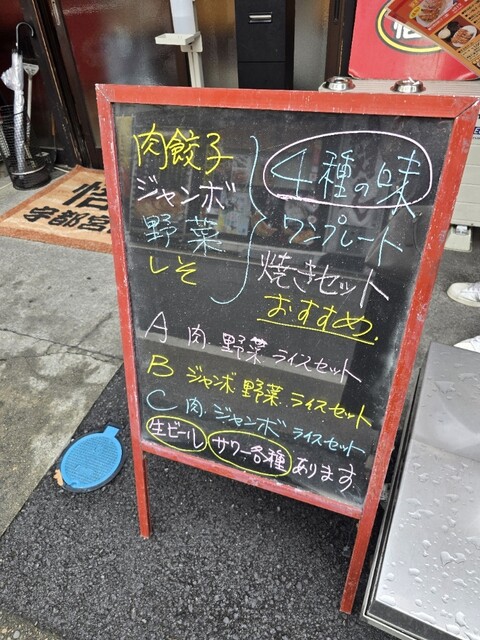 肉餃子
ジャンボ
野菜
しそ
4種の味
ワンプレート
焼きセット
おすすめ.
A 肉・野菜 ライスセット
B ジャンボ・野菜・ライスセット
C 肉・ジャンボ ライスセット
生ビール サワー各種 あります
悟
宇都宮